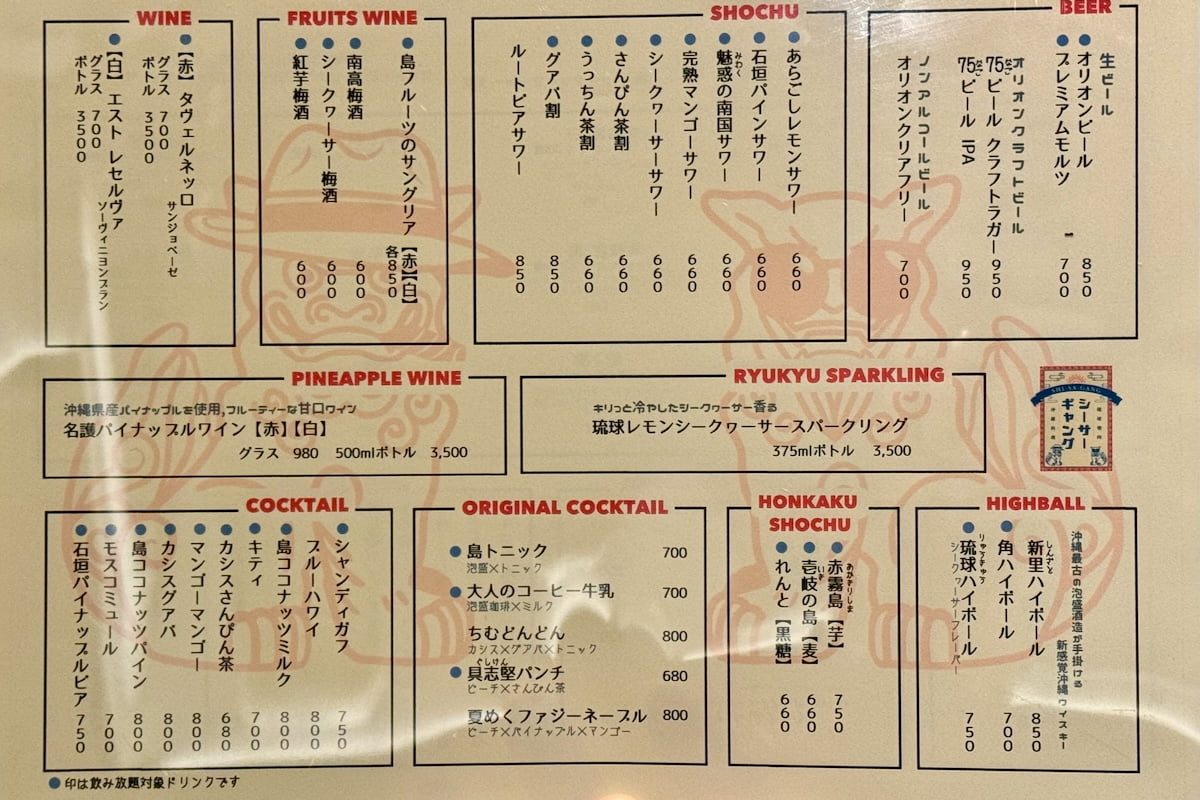 WINE
●【赤】タヴェルネッロ
サンジョベーゼ
グラス 700
ボトル 3500
●【白】エスト レセルヴァ
ソーヴィニヨンブラン
グラス 700
ボトル 3500
FRUITS WINE
●島フルーツのサングリア【赤】【白】
各850
●南高梅酒 600
●シークヮーサー梅酒 600
●紅芋梅酒 600
SHOCHU
●あらごしレモンサワー 660
●石垣パインサワー 660
みわく
●魅惑の南国サワー 660
●完熟マンゴーサワー 660
●シークヮーサーサワー 660
●さんぴん茶割 660
●うっちん茶割 660
●グアバ割 850
ルートビアサワー 850
BEER
生ビール
●オリオンビール 850
●プレミアムモルツ 700
オリオンクラフトビール
75ビール クラフトラガー 950
75ビール IPA 950
ノンアルコールビール
オリオンクリアフリー 700
PINEAPPLE WINE
沖縄県産パイナップルを使用,フルーティーな甘口ワイン
名護パイナップルワイン【赤】【白】
グラス 980 500mlボトル 3,500
RYUKYU SPARKLING
キリっと冷やしたシークヮーサー香る
琉球レモンシークヮーサースパークリング
375mlボトル 3,500
SHI-SA-GANG
シーサー
ギャング
COCKTAIL
●シャンディガフ 750
ブルーハワイ 800
●島ココナッツミルク 800
●キティ 700
●カシスさんぴん茶 680
●マンゴーマンゴー 800
●カシスグアバ 800
●島ココナッツパイン 800
●モスコミュール 700
●石垣パイナップルビア 750
ORIGINAL COCKTAIL
●島トニック 700
泡盛×トニック
●大人のコーヒー牛乳 700
泡盛珈琲×ミルク
ちむどんどん 800
カシス×グアバ×トニック
ぐしけん
●具志堅パンチ 680
ピーチ×さんぴん茶
夏めくファジーネーブル 800
ピーチ×パイナップル×マンゴー
HONKAKU
SHOCHU
あかきりしま
●赤霧島【芋】 750
いき
●壱岐の島【麦】 660
●れんと【黒糖】 660
HIGHBALL
沖縄最古の泡盛酒造が手掛ける
新感覚沖縄ウイスキー
しんざと
新里ハイボール 850
●角ハイボール 700
りゅうきゅう
●琉球ハイボール 750
シークヮーサーフレーバー
●印は飲み放題対象ドリンクです